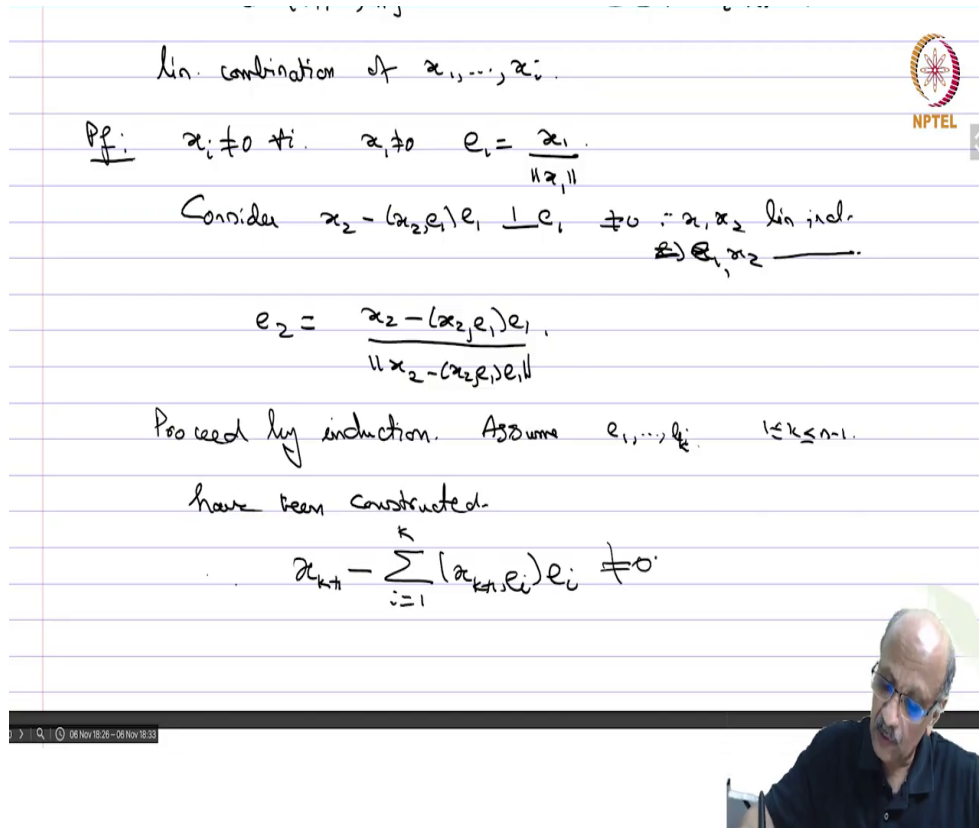 lin. combination of x₁,...,xᵢ.
NPTEL
Pf: xᵢ ≠ 0 ∀i. x₁ ≠ 0 e₁ = x₁ / ||x₁||.
Consider x₂ - (x₂,e₁)e₁ ⊥ e₁ ≠ 0 ∵ x₁ x₂ lin ind.
e₁, x₂ ———.
e₂ = x₂ - (x₂,e₁)e₁ / ||x₂ - (x₂,e₁)e₁||.
Proceed by induction. Assume e₁,...,eₖ. 1≤k≤n-1.
have been constructed.
xₖ₊₁ - ∑ᵢ₌₁ᵏ (xₖ₊₁,eᵢ)eᵢ ≠ 0.
06 Nov 18:26 – 06 Nov 18:33